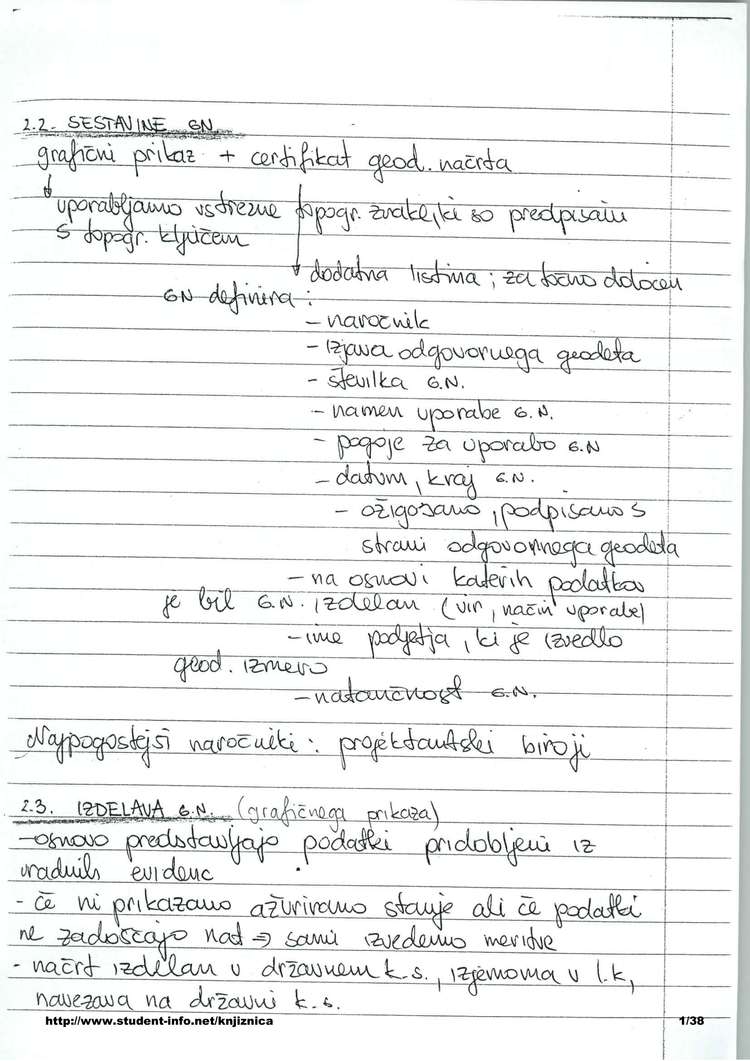 2.2. SESTAVINE GN
grafični prikaz + certifikat geod. načrta
uporabljamo ustrezne topogr. znake, ki so predpisani
s topogr. ključem
dodatna listina; za točno določen
GN definira:
- naročnik
- izjava odgovornega geodeta
- številka G.N.
- namen uporabe G.N.
- pogoje za uporabo G.N
- datum, kraj G.N.
- ožigosano, podpisano s
strani odgovornega geodeta
- na osnovi katerih podatkov
je bil G.N. izdelan (vir, način uporabe)
- ime podjetja, ki je izvedlo
geod. izmero
- natančnost G.N.
Najpogostejši naročniki: projektantski biroji
2.3. IZDELAVA G.N. (grafičnega prikaza)
- osnovo predstavljajo podatki pridobljeni iz
uradnih evidenc
- če ni prikazano ažurirano stanje ali če podatki
ne zadoščajo nat ⇒ sami izvedemo meritve
- načrt izdelan v državnem k.s., izjemoma v l.k,
navezava na državni k.s.
http://www.student-info.net/knjiznica 1/38